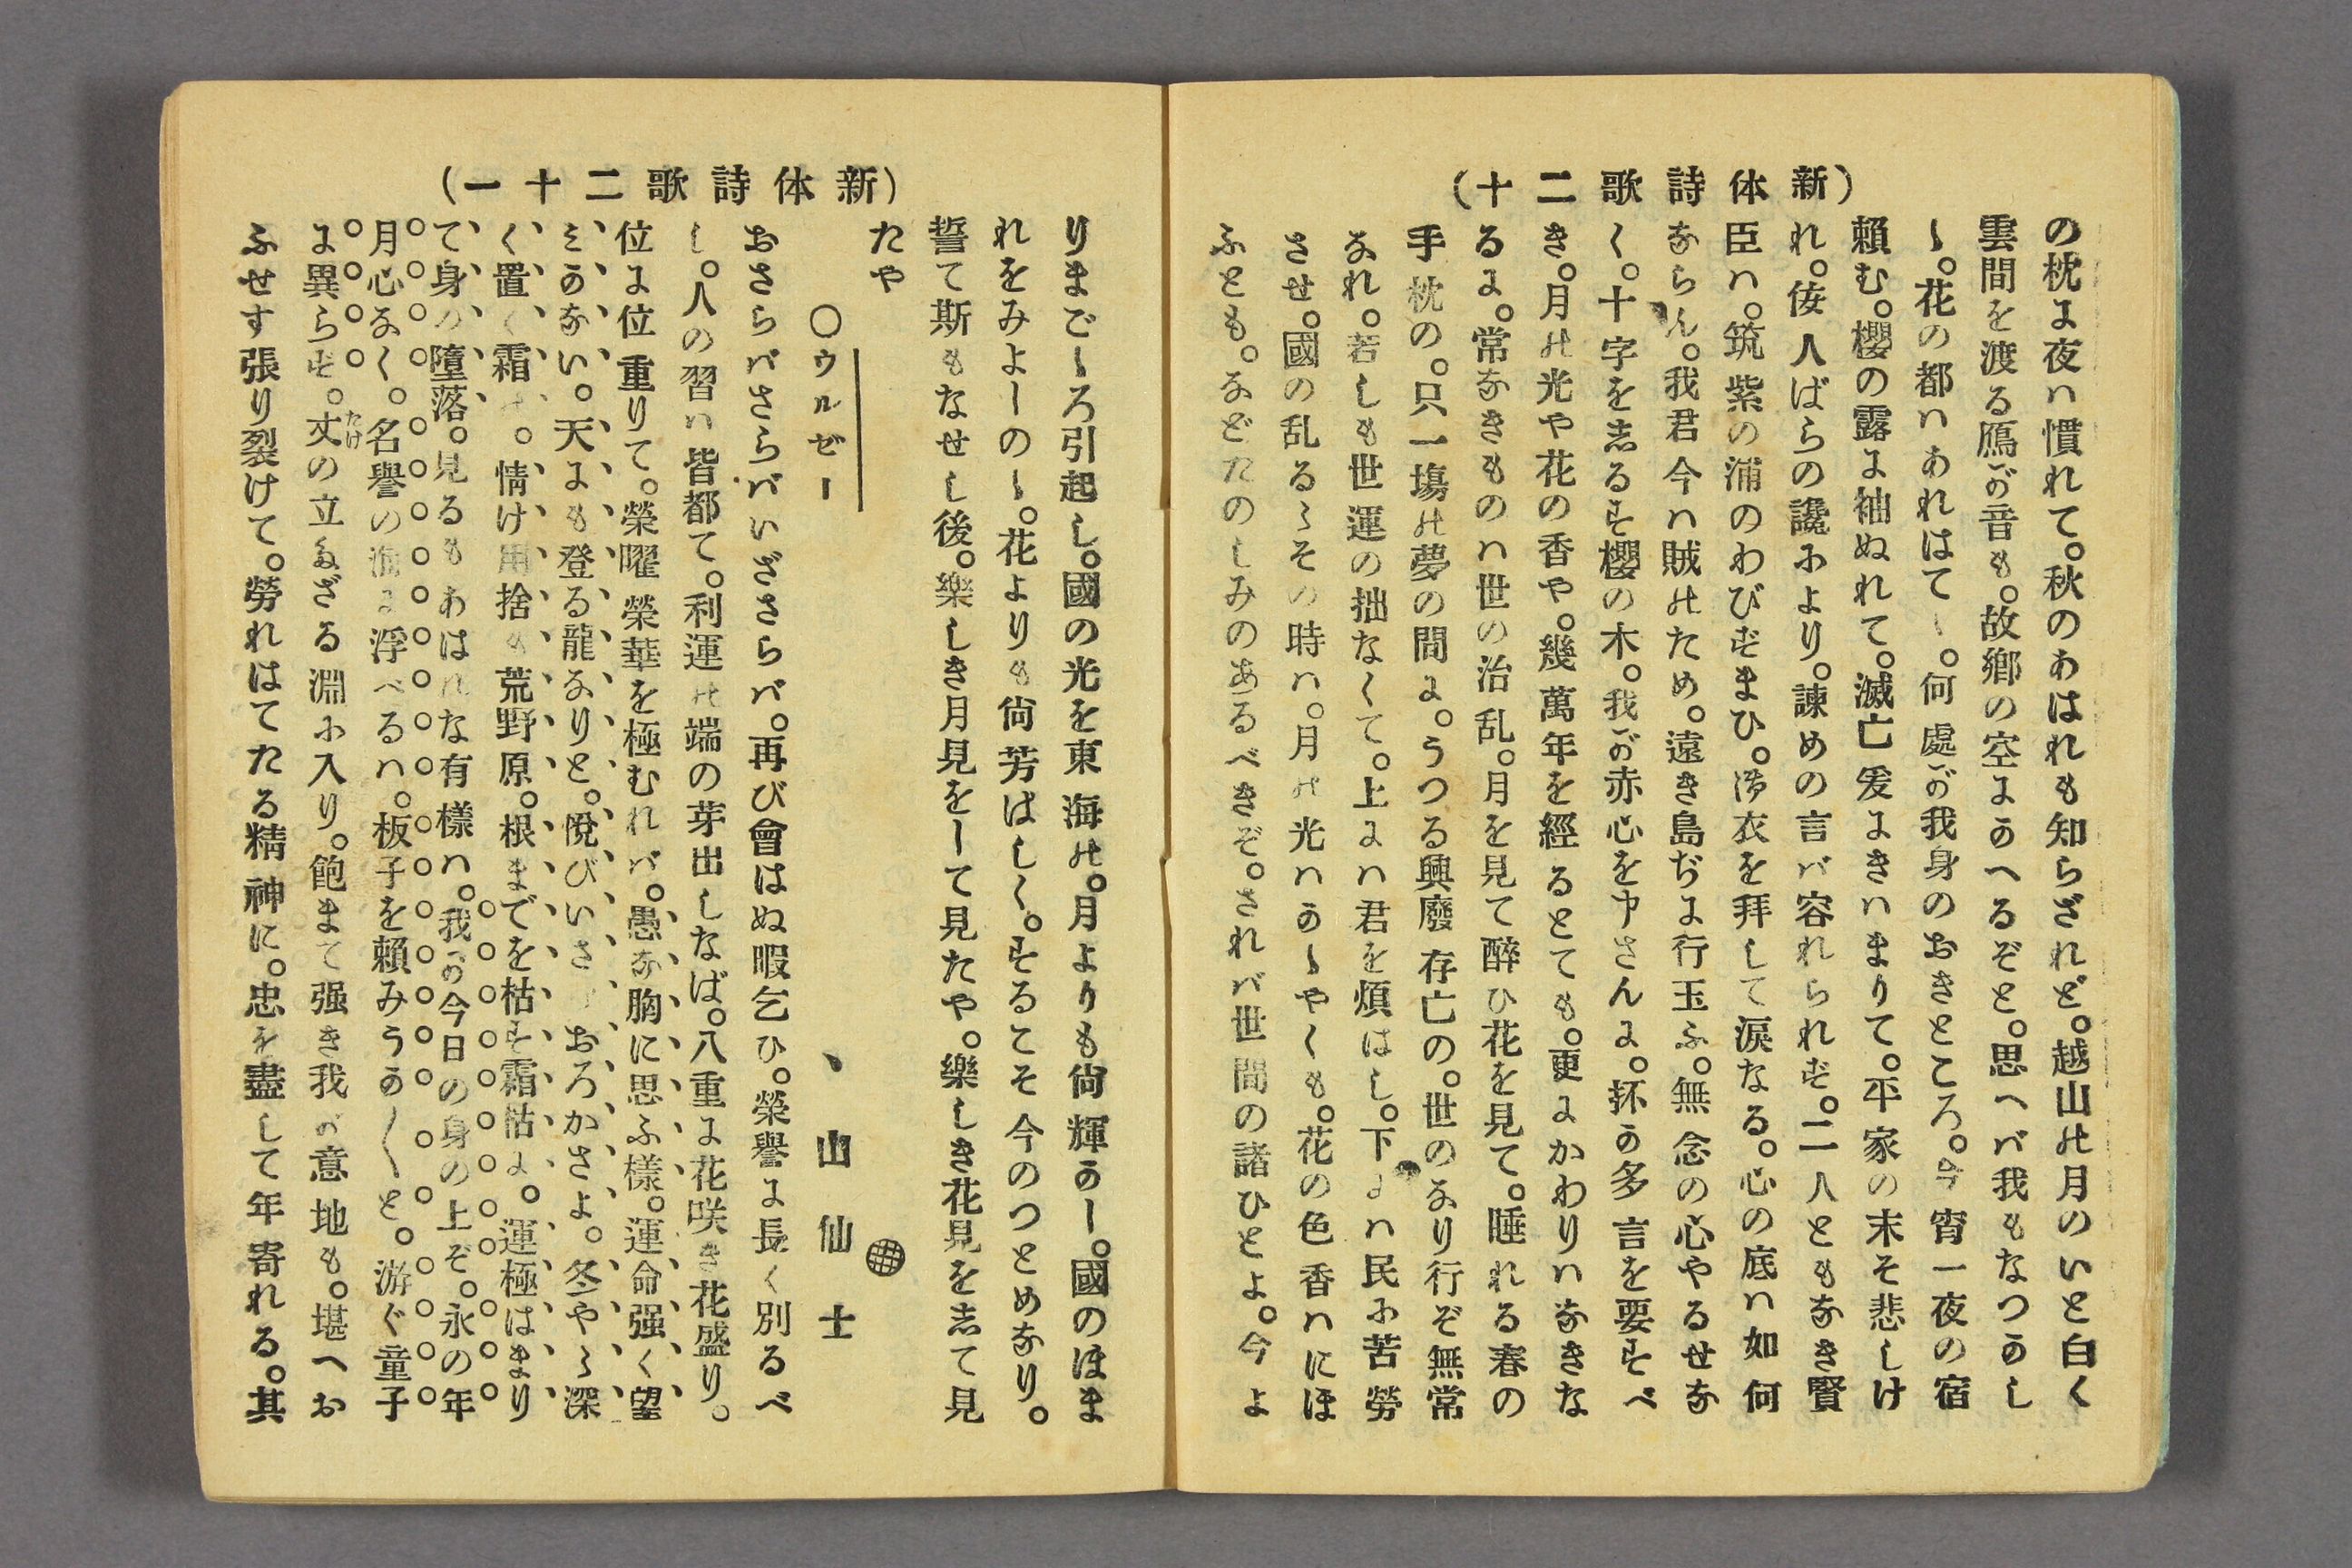 (新体詩歌二十)
の枕に夜ハ慣れて。秋のあはれも知らざれど。越山の月のいと白く
雲間を渡る鴈が音も。故鄕の空にかへるぞと。思へバ我もなつかし
〻。花の都ハあれはて〻。何處が我身のおきところ。今宵一夜の宿
賴む。櫻の露に袖ぬれて。滅亡爰にきハまりて。平家の末そ悲しけ
れ。侫人ばらの讒ふより。諫めの言バ容れられず。二人ともなき賢
臣ハ。筑紫の浦のわびずまひ。御衣を拜して涙なる。心の底ハ如何
ならん。我君今ハ賊のため。遠き島ぢに行玉ふ。無念の心やるせな
く。十字を志るす櫻の木。我が赤心を申さんに。抔か多言を要すべ
き。月の光や花の香や。幾萬年を經るとても。更にかわりハなきな
るに。常なきものハ世の治乱。月を見て醉ひ花を見て。睡れる春の
手枕の。只一塲の夢の間に。うつる興廢存亡の。世のなり行ぞ無常
なれ。若しも世運の拙なくて。上にハ君を煩はし。下にハ民ふ苦勞
させ。國の乱る〻その時ハ。月の光ハか〻やくも。花の色香ハにほ
ふとも。などたのしみのあるべきぞ。されバ世間の諸ひとよ。今よ
(新体詩歌二十一)
りまご〻ろ引起し。國の光を東海の。月よりも尙輝かし。國のほま
れをみよしの〻。花よりも尙芳ばしく。するこそ今のつとめなり。
誓て斯もなせし後。樂しき月見をして見たや。樂しき花見を志て見
たや
〇ウルゼー
丶山仙士
おさらバさらバいざさらバ。再び會はぬ暇乞ひ。榮譽に長く別るべ
し。人の習ハ皆都て。利運の端の芽出しなば。八重に花咲き花盛り。
位に位重りて。榮曜榮華を極むれバ。愚な胸に思ふ樣。運命强く望
ミかない。天にも登る龍なりと。悅びいさむおろかさよ。冬や〻深
く置く霜の。情け用捨も荒野原。根までを枯す霜枯に。運極はまり
て身の墮落。見るもあはれな有樣ハ。我が今日の身の上ぞ。永の年
月心なく。名譽の海に浮べるハ。板子を賴みうか〱と。游ぐ童子
に異らず。丈の立たざる淵ふ入り。飽まて强き我が意地も。堪へお
たけ
ふせす張り裂けて。勞れはてたる精神に。忠を盡して年寄れる。其